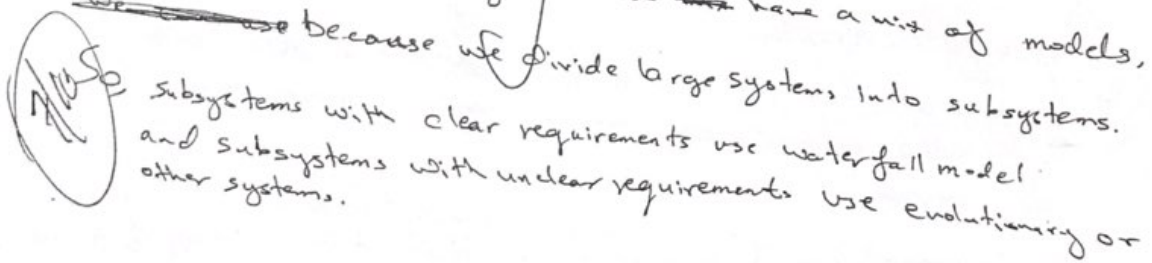 have a mix of models,
because we divide large systems into subsystems.
So, subsystems with clear requirements use waterfall model
and subsystems with unclear requirements use evolutionary or
other systems.